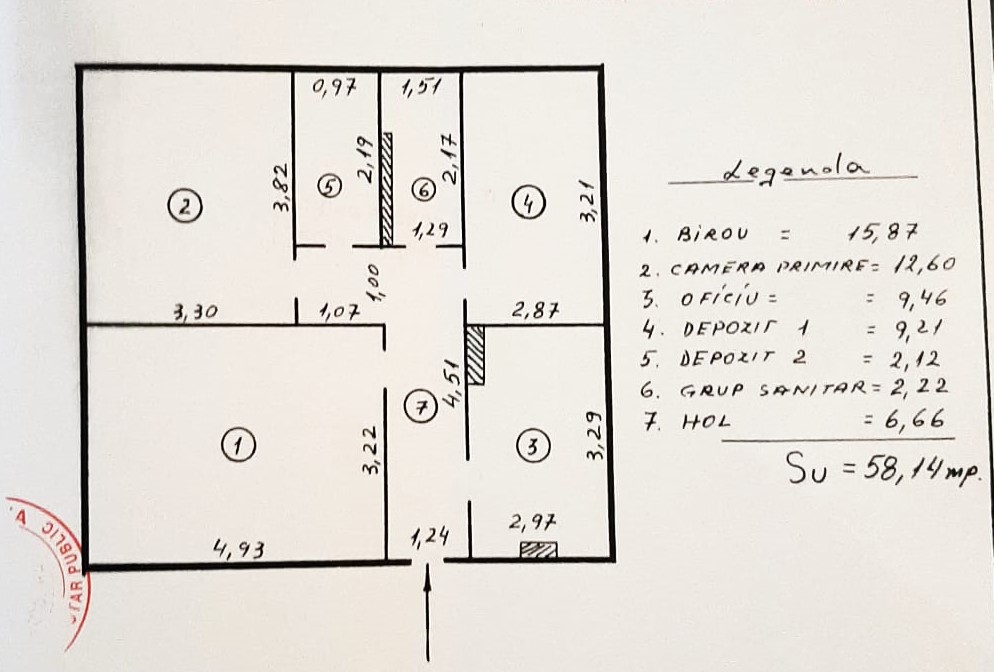 0,97
1,51
2
3,82
5
2,19
6
2,17
1,29
4
3,21
3,30
1,07
1,00
2,87
1
3,22
7
4,51
3
3,29
4,93
1,24
2,97
Legenda
1. BIROU = 15,87
2. CAMERA PRIMIRE = 12,60
3. OFÍCÍU = = 9,46
4. DEPOZIT 1 = 9,21
5. DEPOZIT 2 = 2,12
6. GRUP SANITAR = 2,22
7. HOL = 6,66
SU = 58,14 mp.
TAR PUBLIC A.